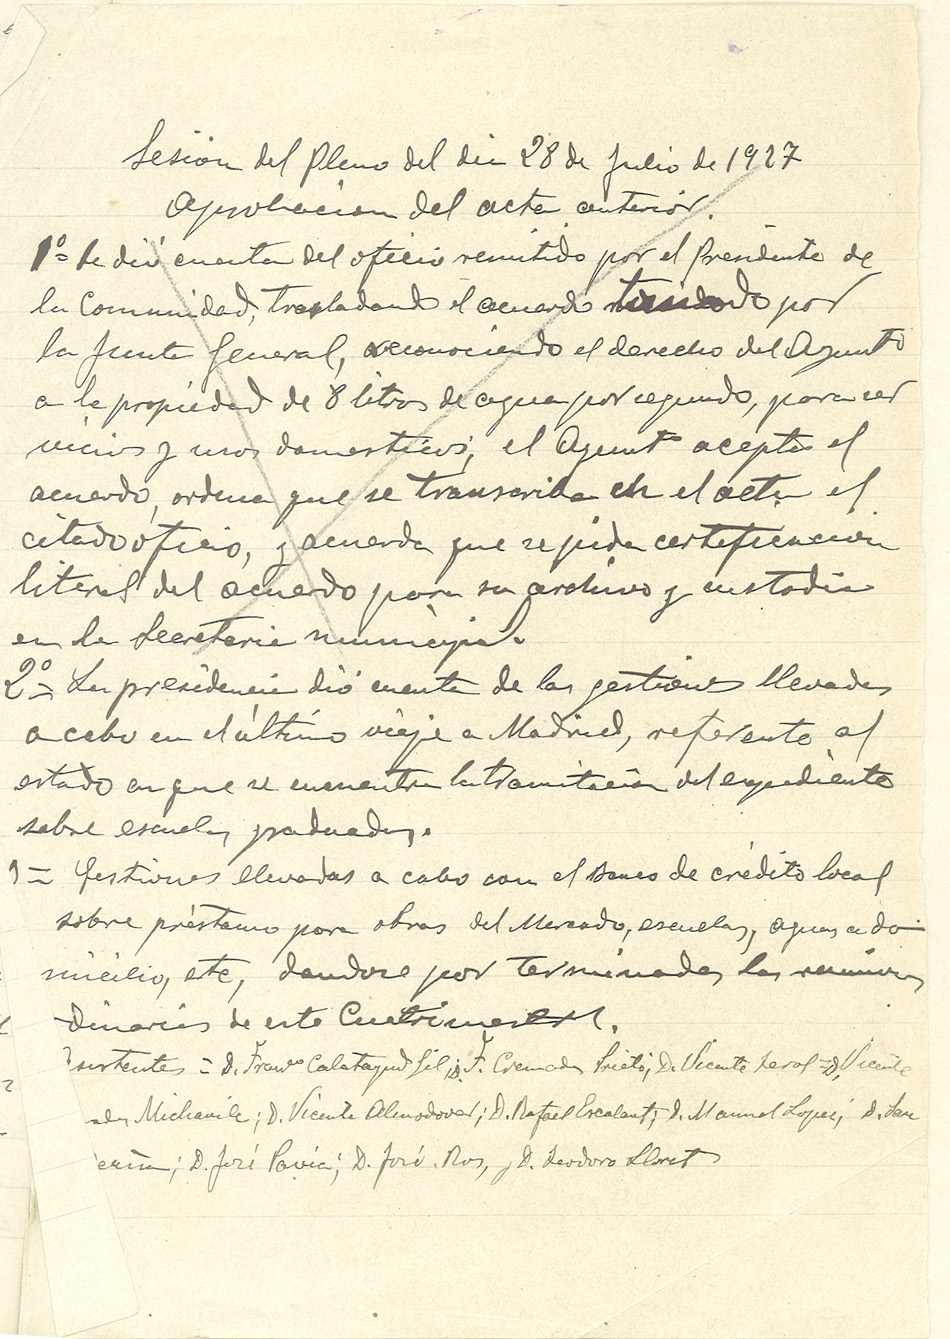 Sesion del Pleno del dia 28 de Julio de 1927
Aprobacion del acta anterior.
1º= Se dió cuenta del oficio remitido por el Presidente de
la Comunidad, trasladando el acuerdo tomado por
la Junta General, reconociendo el derecho del Ayuntº
a la propiedad de 8 litros de agua por segundo, para ser
vicios y usos domesticos; el Ayuntº acepta el
acuerdo, ordena que se transcriba en el acta el
citado oficio, y acuerda que se pida certificacion
literal del acuerdo para su archivo y custodia
en la Secretaria municipal.
2º= La presidencia dió cuenta de las gestiones llevadas
a cabo en el último viaje a Madrid, referente al
estado en que se encuentra la tramitacion del expediente
sobre escuelas graduadas.
= Gestiones llevadas a cabo con el Banco de crédito local
sobre préstamo para obras del Mercado, escuelas, aguas a do-
micilio, etc, dandose por terminadas las reuniones
dinarias de este Cuatrimestre.
= D. Franco Calatayud Gil; D. F. Cremades Prieto; D. Vicente Seral = D. Vicente
Michavila; D. Vicente Almodovar; D. Rafael Escalant; D. Manuel Lopez; D.
D. José Pavia; D. José Ros, y D. Teodoro Lloret